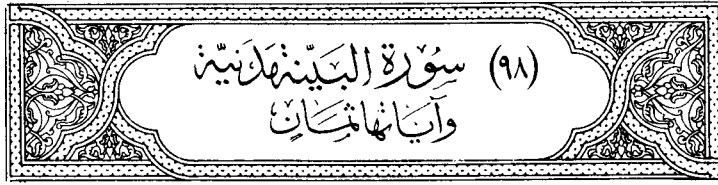 (٩٨) سُورَة البَيِّنَة مَدَنِيَّة
وَآيَاتُهَا ثَمَانٍ